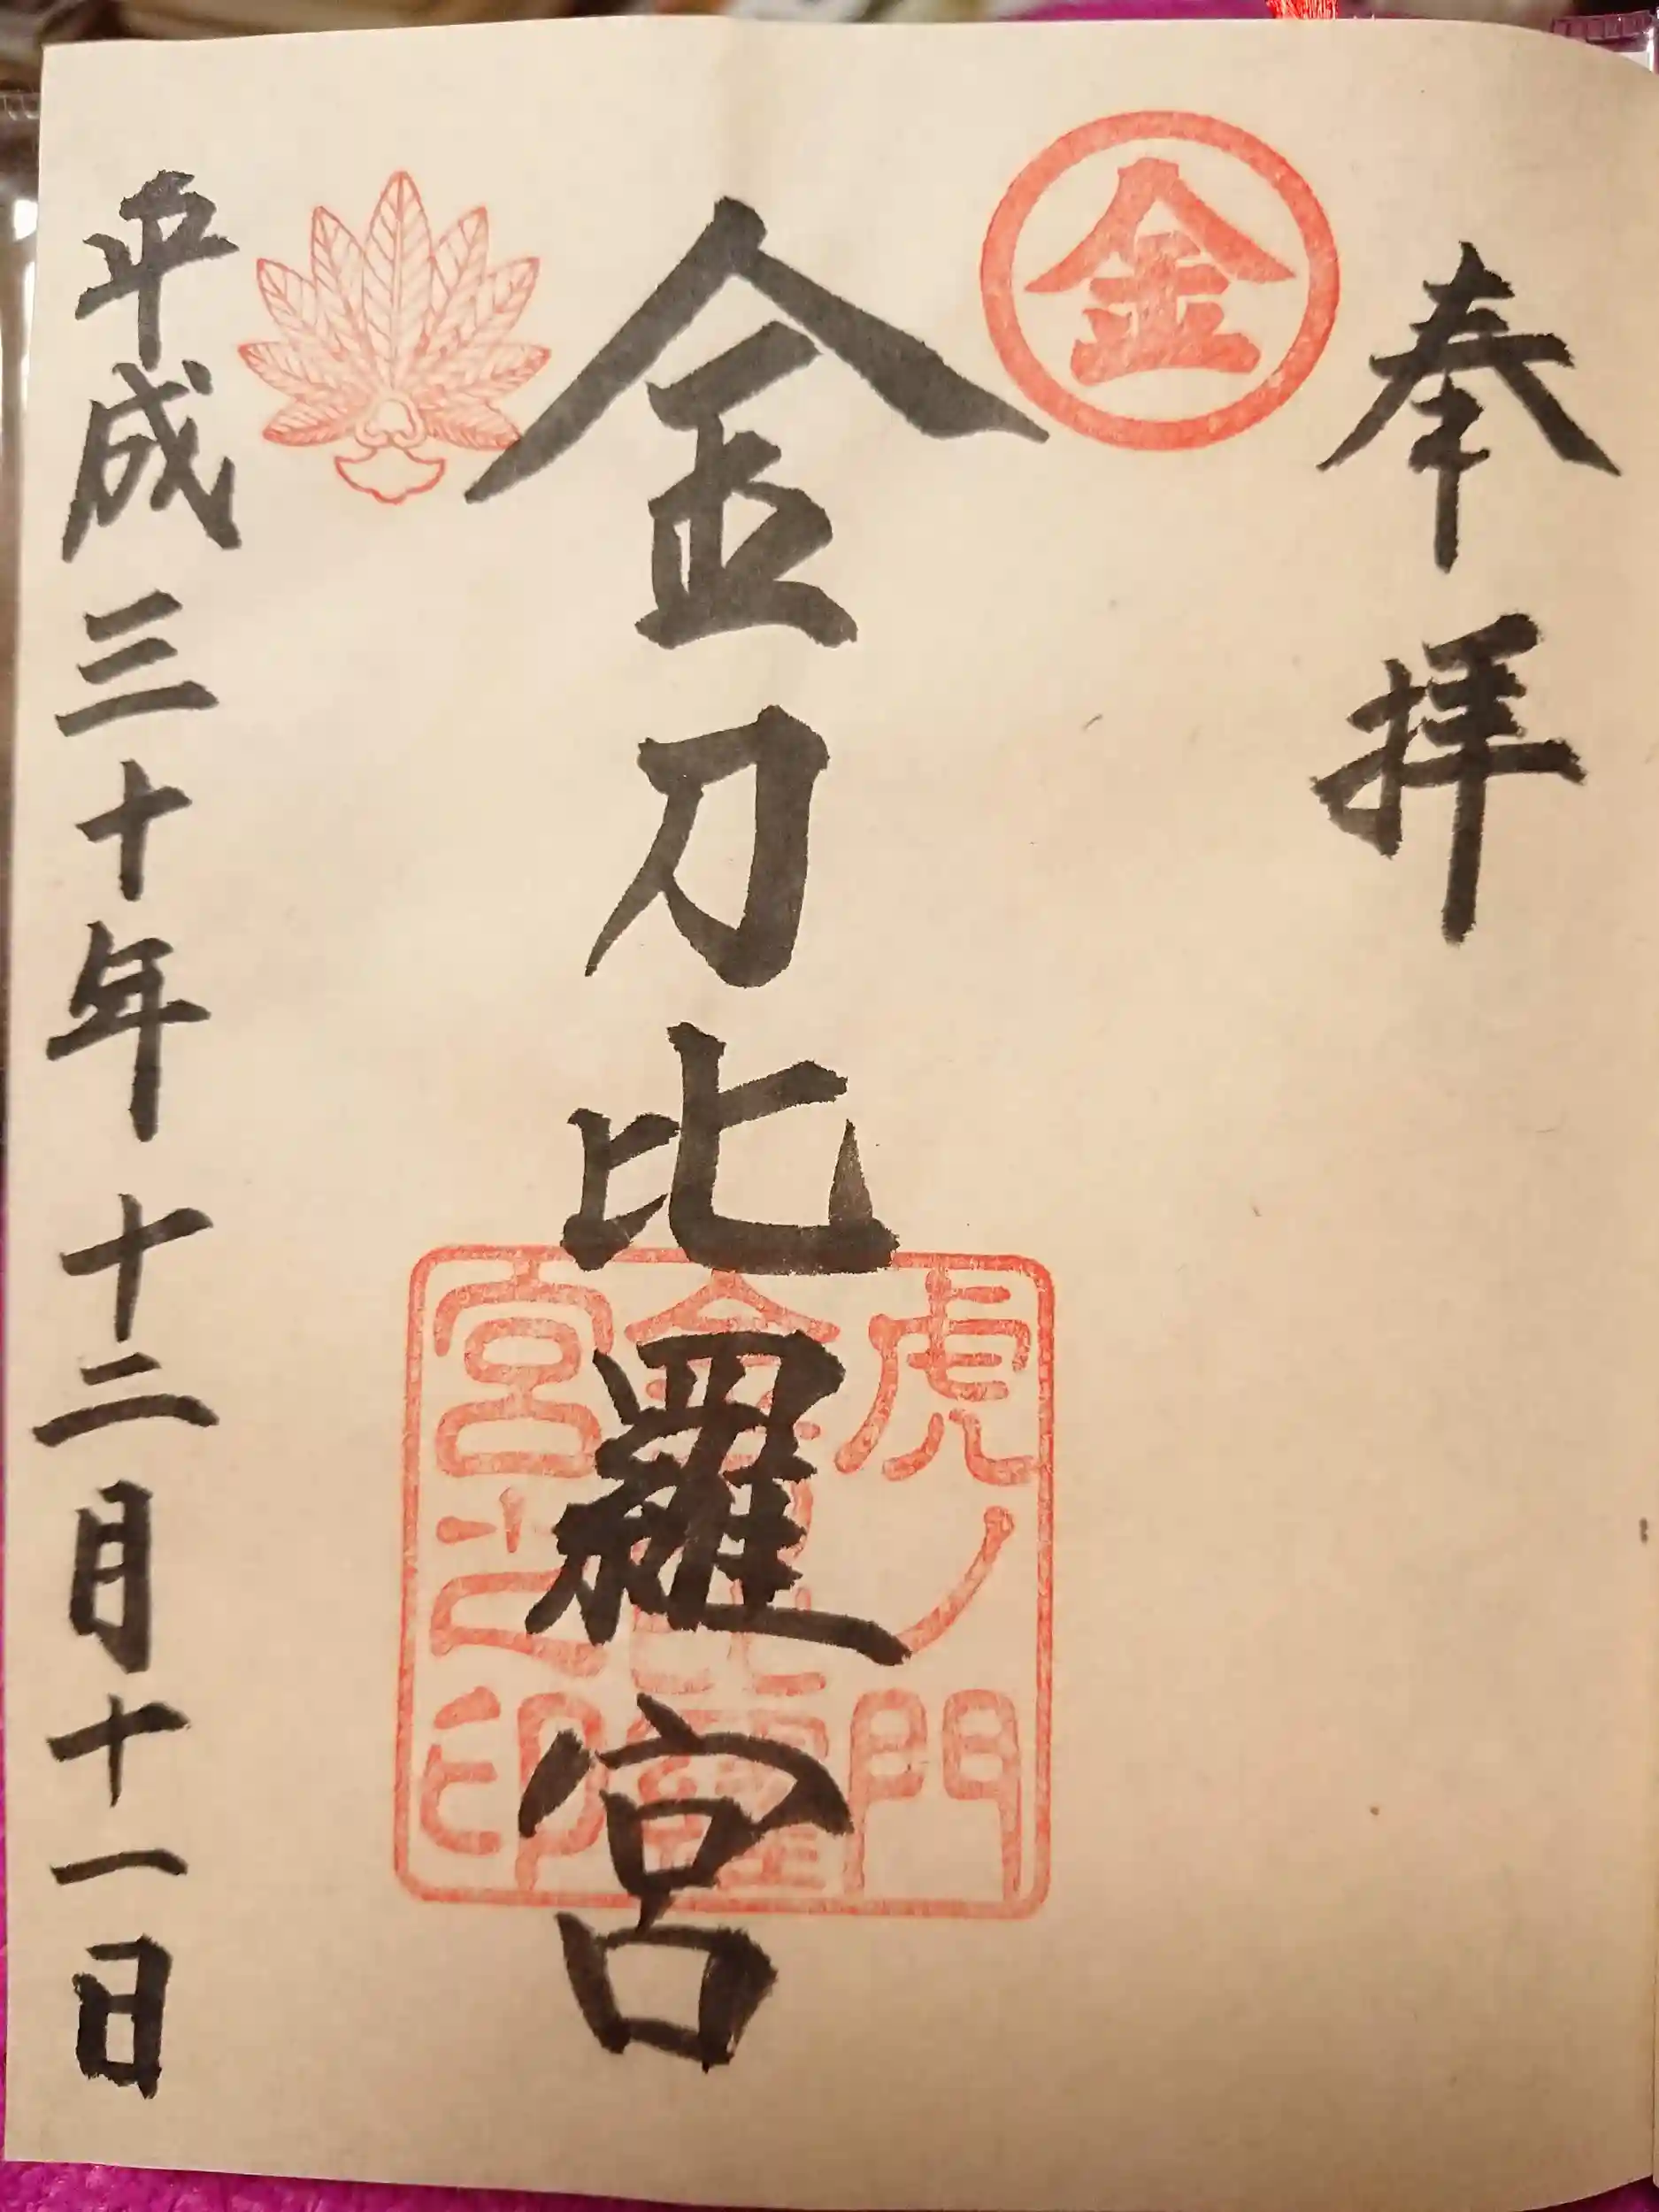 奉拝
金
金刀比羅宮
虎ノ門
金刀比羅
宮之印
平成三十年十二月十一日